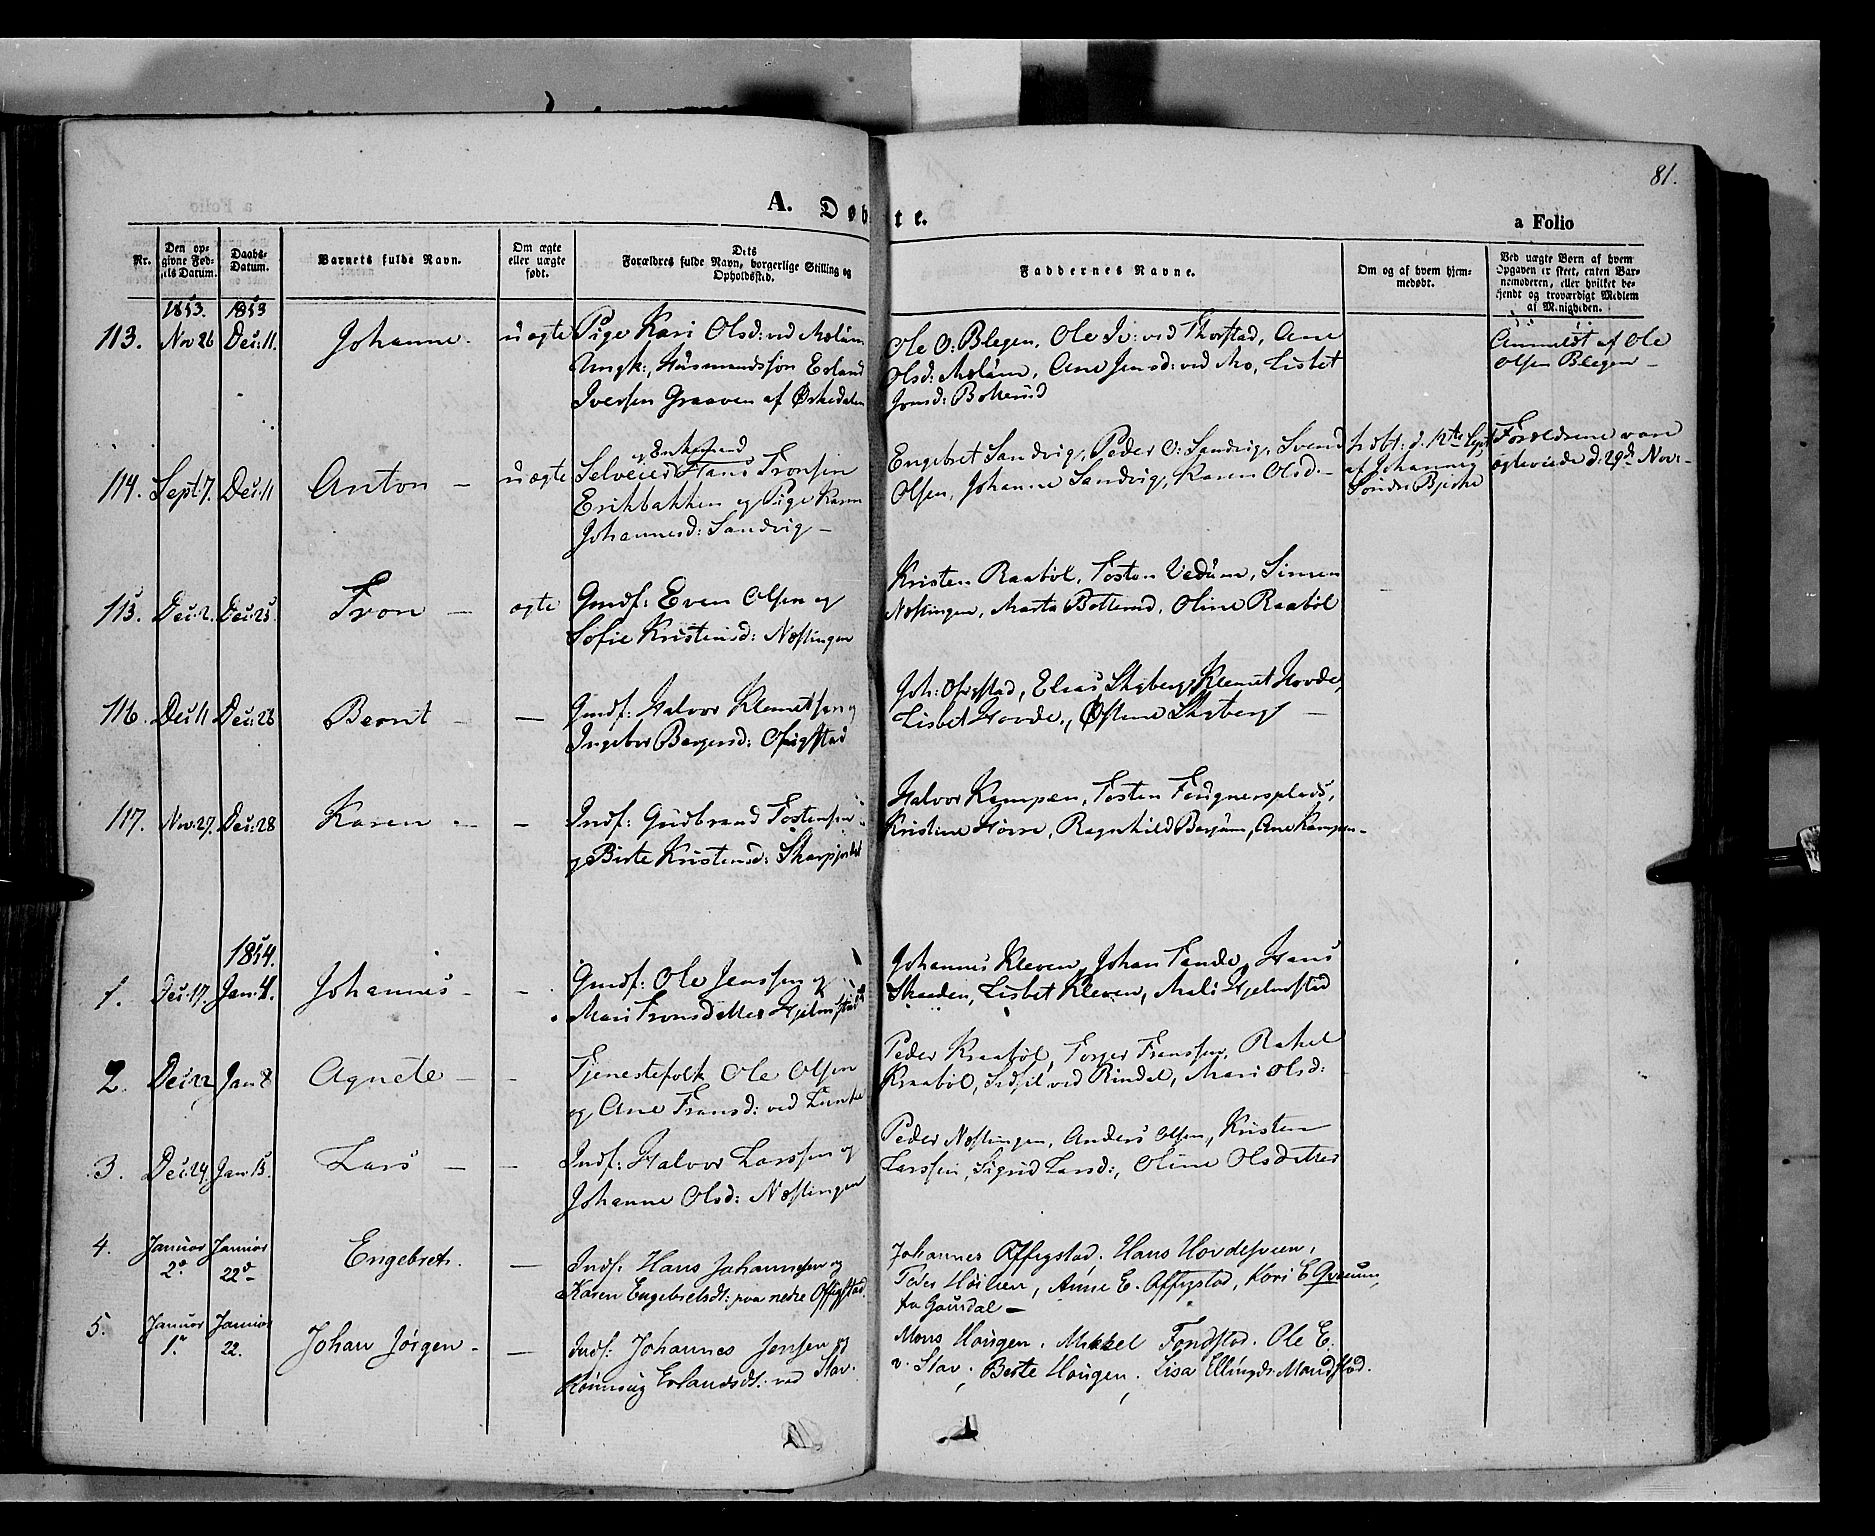 81.
A. Døbte.
a Folio
Nr.
Den opgivne Fødsels Datum.
Daabs-Datum.
Barnets fulde Navn.
Om ægte eller uægte født.
Dets Forældres fulde Navn, borgerlige Stilling og Opholdssted.
Faddernes Navne.
Om og af hvem hjemmedøbt.
Ved uægte Børn af hvem Opgaven er skeet, enten Barnemoderen, eller hvilket bekjendt og troværdigt Medlem af Menigheden.
1853. 1853
113. Nov 26 Dec: 11. Johanne. uægte Pige Kari Olsd: ved Aslum
Ungk:, Husmandssøn Erland
Iversen Graaven af Øskedalen
Ole O: Blegen, Ole Iv: ved Thorstad, Ane
Olsd: Aslum, Ane Jensd: ved Mo, Lisbet
Jonsd: Botterud
Anmeldt af Ole
Olsen Blegen –
114. Sept: 7. Dec: 11 Anton – uægte
og Enkemand
Selveier Hans Tronsen
Erikbakken og Pige Karen
Johannesd: Sandvig –
Engebret Sandvig, Peder O: Sandvig, Svend
Olsen, Johanne Sandvig, Karen Olsd: –
hdbt: d. 12te Sept
af Johannes
Søndre Bjerke
Forældrene vare
ægteviede d: 29de Nov: –
115. Dec: 2. Dec: 25. Tron – ægte Gmdf: Even Olsen og
Sofie Kristensd: Næstingen
Kristen Raabøl, Tosten Vedum, Simen
Næstingen, Marta Botterud, Oline Raabøl
116. Dec 11 Dec: 28 Bernt – – Gmdf: Halvor Klemetsen og
Ingebor Bergersd: Ofigstad
Joh: Ofigstad, Elias Skyberg, Klemet Hovde,
Lisbet Hovde, Østine Skyberg –
117. Nov: 27. Dec: 28 Karen – – Indf: Gudbrand Tostensen
og Birte Kristensd:
Halvor Kampen, Tosten Fougnersplads,
Kristine Hørre, Ragnhild Bergum, Ane Kampen –
1854.
1. Dec: 17. Jan: 4. Johannes – – Gmdf: Ole Jenssen og
Mari Tronsdatter Hjelmstad
Johannes Kleven, Johan Tande, Hans
Skaaden, Lisbet Kleven, Mali Hjelmstad
2. Dec: 22 Jan 8 Agnete – – Tjenestefolk Ole Olsen
og Ane Fransd: ved Lunke
Peder Kraabøl, Torger Franssen, Rakel
Kraabøl, Sidsel ved Rindal, Mari Olsd:
3. Dec: 24. Jan: 15. Lars – – Indf: Halvor Larssen og
Johanne Olsd: Næstingen
Peder Næstingen, Anders Olsen, Kristen
Larssen, Sigrid Larsd:, Oline Olsdatter
4. Januar 2d. Januar 22d – Engebret. – Indf: Hans Johannesen og
Karen Engebretsdt: paa nedre Offigstad.
Johannes Offigstad. Hans Hovdesveen,
Peder Høilien, Anne E. Offigstad, Kari E.
fra Gausdal –
5. Januar 1. Januar 22. Johan Jørgen – – Indf: Johannes Jensen og
Rønnaug Erlandsdt: ved Slav.
Mons Haugen. Mikkel Fondstad. Ole E.
v. Slav. Berte Haugen. Lisa Ellingsdt Maudstad.